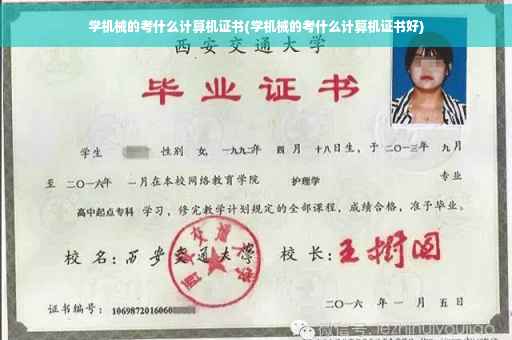 学机械的考什么计算机证书(学机械的考什么计算机证书好)
西安交通大学
毕业证书
学生 性别 女, 一九九二年 四 月 十八日生, 于 二〇一三年 九月
至 二〇一六年 一月在本校网络教育学院 护理学 专业
高中起点专科 学习, 修完教学计划规定的全部课程, 成绩合格, 准予毕业。
校 名: 西安交通大学 校 长: 王树国
西安交通大学
证书编号: 1069872016060
二〇一六 年 一 月 五 日
微信号: jezhihuiyoujiao